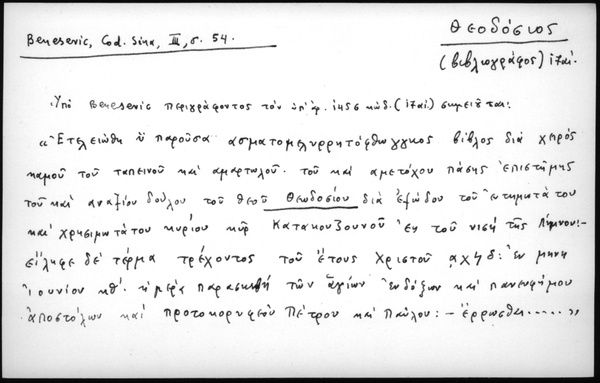 Benesevic, Cod. Sina, III, σ. 54.
Θεοδόσιος
(βιβλιογράφος) ιζαι.
Ὑπὸ Benesevic περιγράφοντος τὸν ὑπ' ἀρ. 1456 κώδ. (ιζαι.) σημειοῦται:
« Ἐτελειώθη ἡ παροῦσα ασματομελιρρητόφθωγγκος βίβλος διὰ χειρός
καμοῦ τοῦ ταπεινοῦ καὶ αμαρτωλοῦ. τοῦ καὶ αμετόχου πάσης ἐπιστήμης
τοῦ καὶ αναξίου δούλου τοῦ θεοῦ Θεοδοσίου διὰ ἐξώδου τοῦ ἐντημωτάτου
καὶ χρησιμωτάτου κυρίου κῦρ Κατακουζουνοῦ ἐκ τοῦ νησὴ τῆς Λήμνου:-
εἴληφε δὲ τέρμα τρέχοντος τοῦ ἔτους Χριστοῦ αχϟδ: Ἐν μηνη
Ἰουνίου κθ. ἡμέρα παρασκευὴ τῶν ἁγίων ἐνδόξων καὶ πανευφήμου
ἀποστόλων καὶ προτοκορυφέου Πέτρου καὶ Παύλου: – ἔρρωσθαι..... »